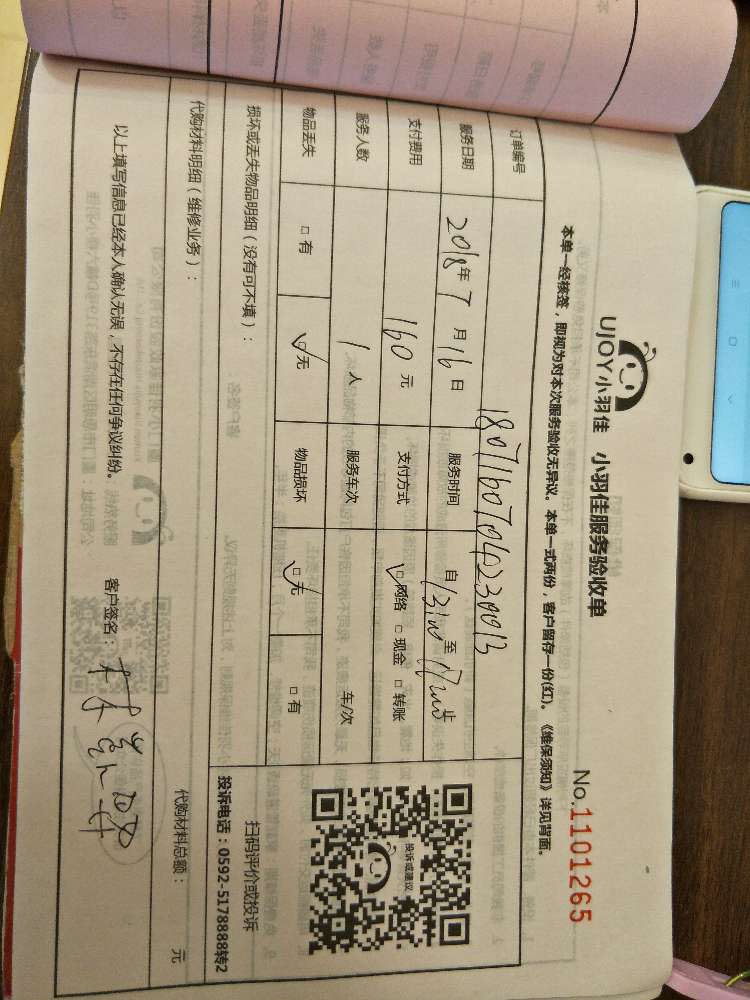 UJOY小羽佳 小羽佳服务验收单
No.1101265
本单一经核签，即视为对本次服务验收无异议。本单一式两份，客户留存一份(红)。《维保须知》详见背面。
订单编号 18071160704230013
服务日期 2018年7月16日 服务时间 自13:00至17:00止
支付费用 160元 支付方式 网络 现金 转账
服务人数 1人 服务车次 车/次
物品丢失 有 无 物品损坏 无 有
投诉或建议
扫码评价或投诉
投诉电话：0592-5178888转2
损坏或丢失物品明细（没有可不填）：
代购材料明细（维修业务）：
代购材料总额： 元
以上填写信息已经本人确认无误，不存在任何争议纠纷。 客户签名：